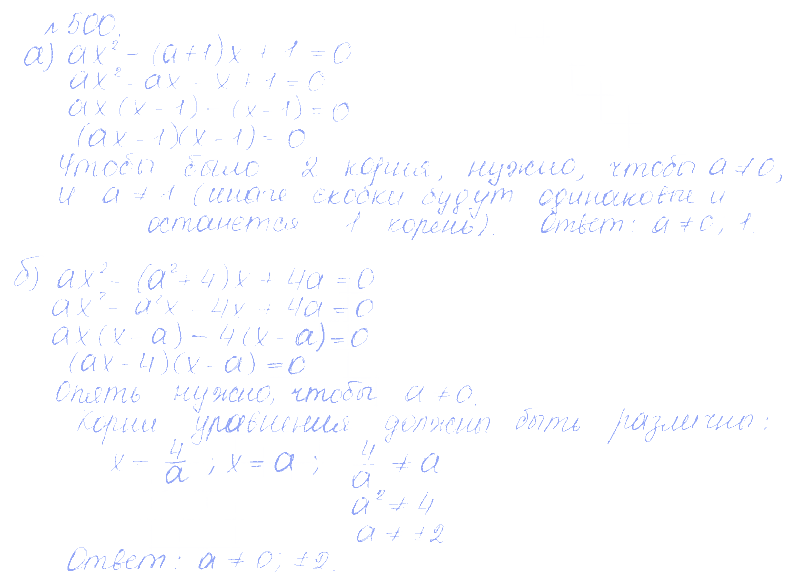 № 500.
а) ax² - (a+1)x + 1 = 0
ax² - ax - x + 1 = 0
ax(x - 1) - (x - 1) = 0
(ax - 1)(x - 1) = 0
Чтобы было 2 корня, нужно, чтобы a ≠ 0,
и a ≠ 1 (иначе скобки будут одинаковые и
останется 1 корень). Ответ: a ≠ 0, 1.
б) ax² - (a² + 4)x + 4a = 0
ax² - a²x - 4x + 4a = 0
ax(x - a) - 4(x - a) = 0
(ax - 4)(x - a) = 0
Опять нужно, чтобы a ≠ 0.
Корни уравнения должны быть различны:
x = 4/a ; x = a ; 4/a ≠ a
a² ≠ 4
a ≠ ±2
Ответ: a ≠ 0; ±2.